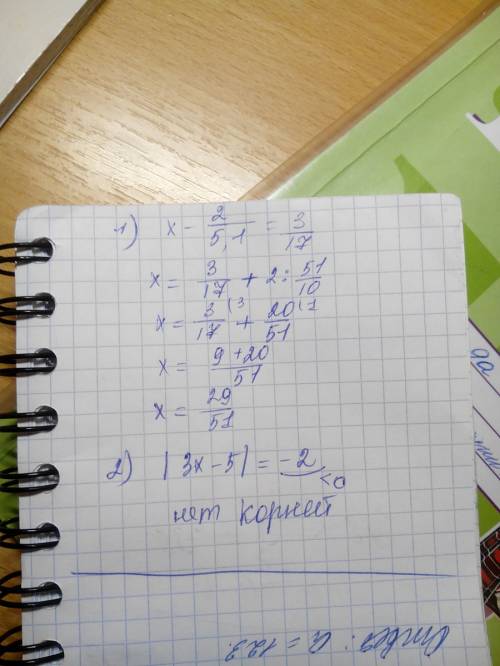 1) x - 2/5,1 = 3/17
x = 3/17 + 2 : 51/10
x = 3/17 (3 + 20/51 (1
x = 9+20/51
x = 29/51
2) |3x-5| = -2 <0
нет корней
Ответ: a = 123.